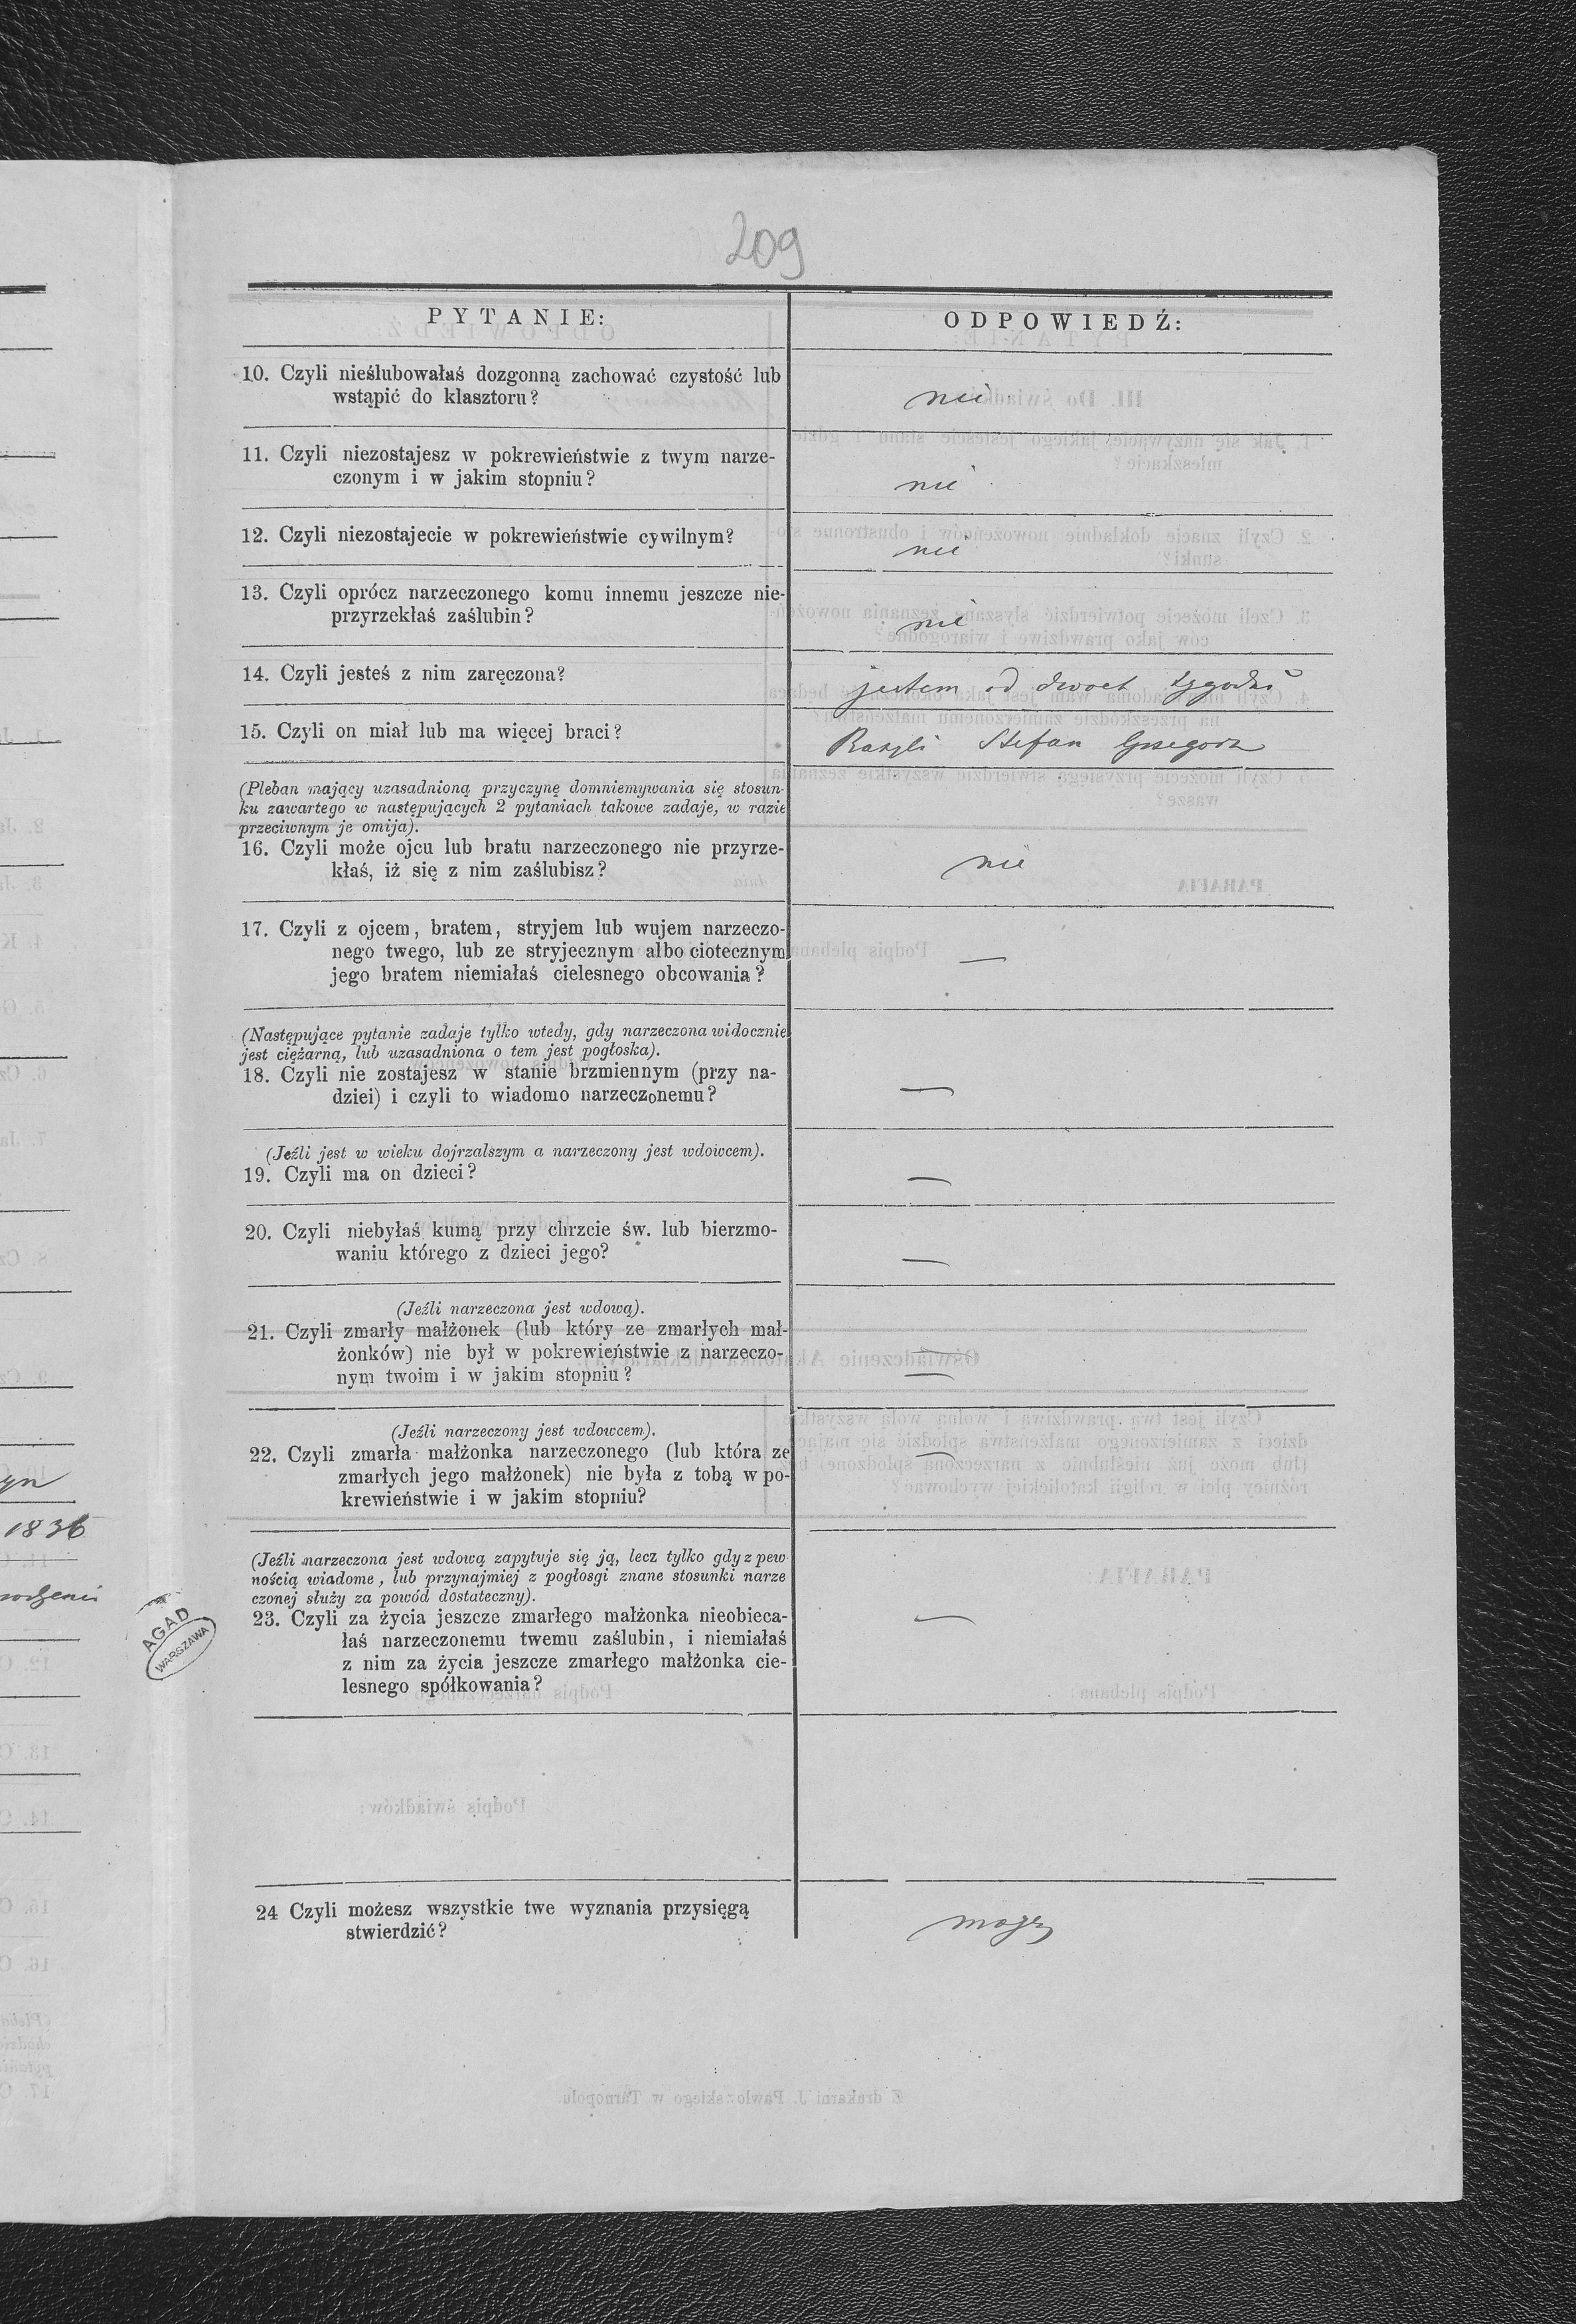 209
PYTANIE:
ODPOWIEDŹ:
10. Czyli nieślubowałaś dozgonną zachować czystość lub
wstąpić do klasztoru?
nie
11. Czyli niezostajesz w pokrewieństwie z twym narze-
czonym i w jakim stopniu?
nie
12. Czyli niezostajecie w pokrewieństwie cywilnym?
nie
13. Czyli oprócz narzeczonego komu innemu jeszcze nie-
przyrzekłaś zaślubin?
nie
14. Czyli jesteś z nim zaręczona?
jestem od dwoch tygodni
15. Czyli on miał lub ma więcej braci?
Bazyli Stefan Grzegorz
(Pleban mający uzasadnioną przyczynę domniemywania się stosun-
ku zawartego w następujących 2 pytaniach takowe zadaje, w razie
przeciwnym je omija).
16. Czyli może ojcu lub bratu narzeczonego nie przyrze-
kłaś, iż się z nim zaślubisz?
nie
17. Czyli z ojcem, bratem, stryjem lub wujem narzeczo-
nego twego, lub ze stryjecznym albo ciotecznym
jego bratem niemiałaś cielesnego obcowania?
—
(Następujące pytanie zadaje tylko wtedy, gdy narzeczona widocznie
jest ciężarną, lub uzasadniona o tem jest pogłoska).
18. Czyli nie zostajesz w stanie brzmiennym (przy na-
dziei) i czyli to wiadomo narzeczonemu?
—
(Jeźli jest w wieku dojrzalszym a narzeczony jest wdowcem).
19. Czyli ma on dzieci?
—
20. Czyli niebyłaś kumą przy chrzcie św. lub bierzmo-
waniu którego z dzieci jego?
—
(Jeźli narzeczona jest wdową).
21. Czyli zmarły małżonek (lub który ze zmarłych mał-
żonków) nie był w pokrewieństwie z narzeczo-
nym twoim i w jakim stopniu?
—
(Jeźli narzeczony jest wdowcem).
22. Czyli zmarła małżonka narzeczonego (lub która ze
zmarłych jego małżonek) nie była z tobą w po-
krewieństwie i w jakim stopniu?
—
(Jeźli narzeczona jest wdową zapytuje się ją, lecz tylko gdy z pew-
nością wiadome, lub przynajmiej z pogłosgi znane stosunki narze
czonej służy za powód dostateczny).
23. Czyli za życia jeszcze zmarłego małżonka nieobieca-
łaś narzeczonemu twemu zaślubin, i niemiałaś
z nim za życia jeszcze zmarłego małżonka cie-
lesnego spółkowania?
—
24 Czyli możesz wszystkie twe wyznania przysięgą
stwierdzić?
mogę
1836
AGAD
WARSZAWA